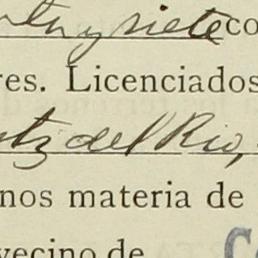 y siete co
res. Licenciados
tz del Rio,
nos materia de
vecino de